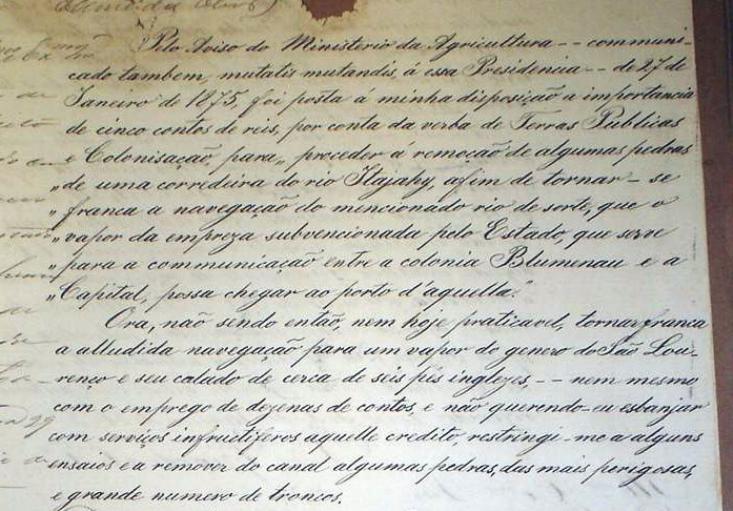 Pelo Aviso do Ministerio da Agricultura -- communi-
cado tambem, mutatis mutandis, á essa Presidencia -- de 27 de
Janeiro de 1875, foi posta á minha disposição a importancia
de cinco contos de reis, por conta da verba de Terras Publicas
e Colonisação, para „ proceder á remoção de algumas pedras
„ de uma corredeira do rio Itajahy, afim de tornar-se
„ franca a navegação do mencionado rio de sorte, que o
„ vapor da empreza subvencionada pelo Estado, que serve
„ para a communicação entre a colonia Blumenau e a
„ Capital, possa chegar ao porto d'aquella."
Ora, não sendo então, nem hoje praticavel, tornar franca
a alludida navegação para um vapor do genero do São Lou-
renço e seu calado de cerca de seis pés inglezes, -- nem mesmo
com o emprego de dezenas de contos, e não querendo-eu esbanjar
com serviços infructiferos aquelle credito, restringi-me a alguns
ensaios e a remover do canal algumas pedras, das mais perigosas,
e grande numero de troncos.